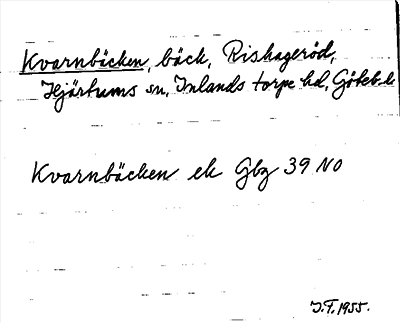 Kvarnbäcken, bäck, Rishageröd,
Hjärtums sn, Inlands torpe hd, Göteb. l.
Kvarnbäcken ek Gbg 39 NO
J.F. 1955.